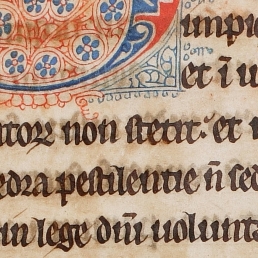 impi
et ī u
torꝝ non stetit: et
edra pestilentie n̄ sed
in lege dn̄i uolunta